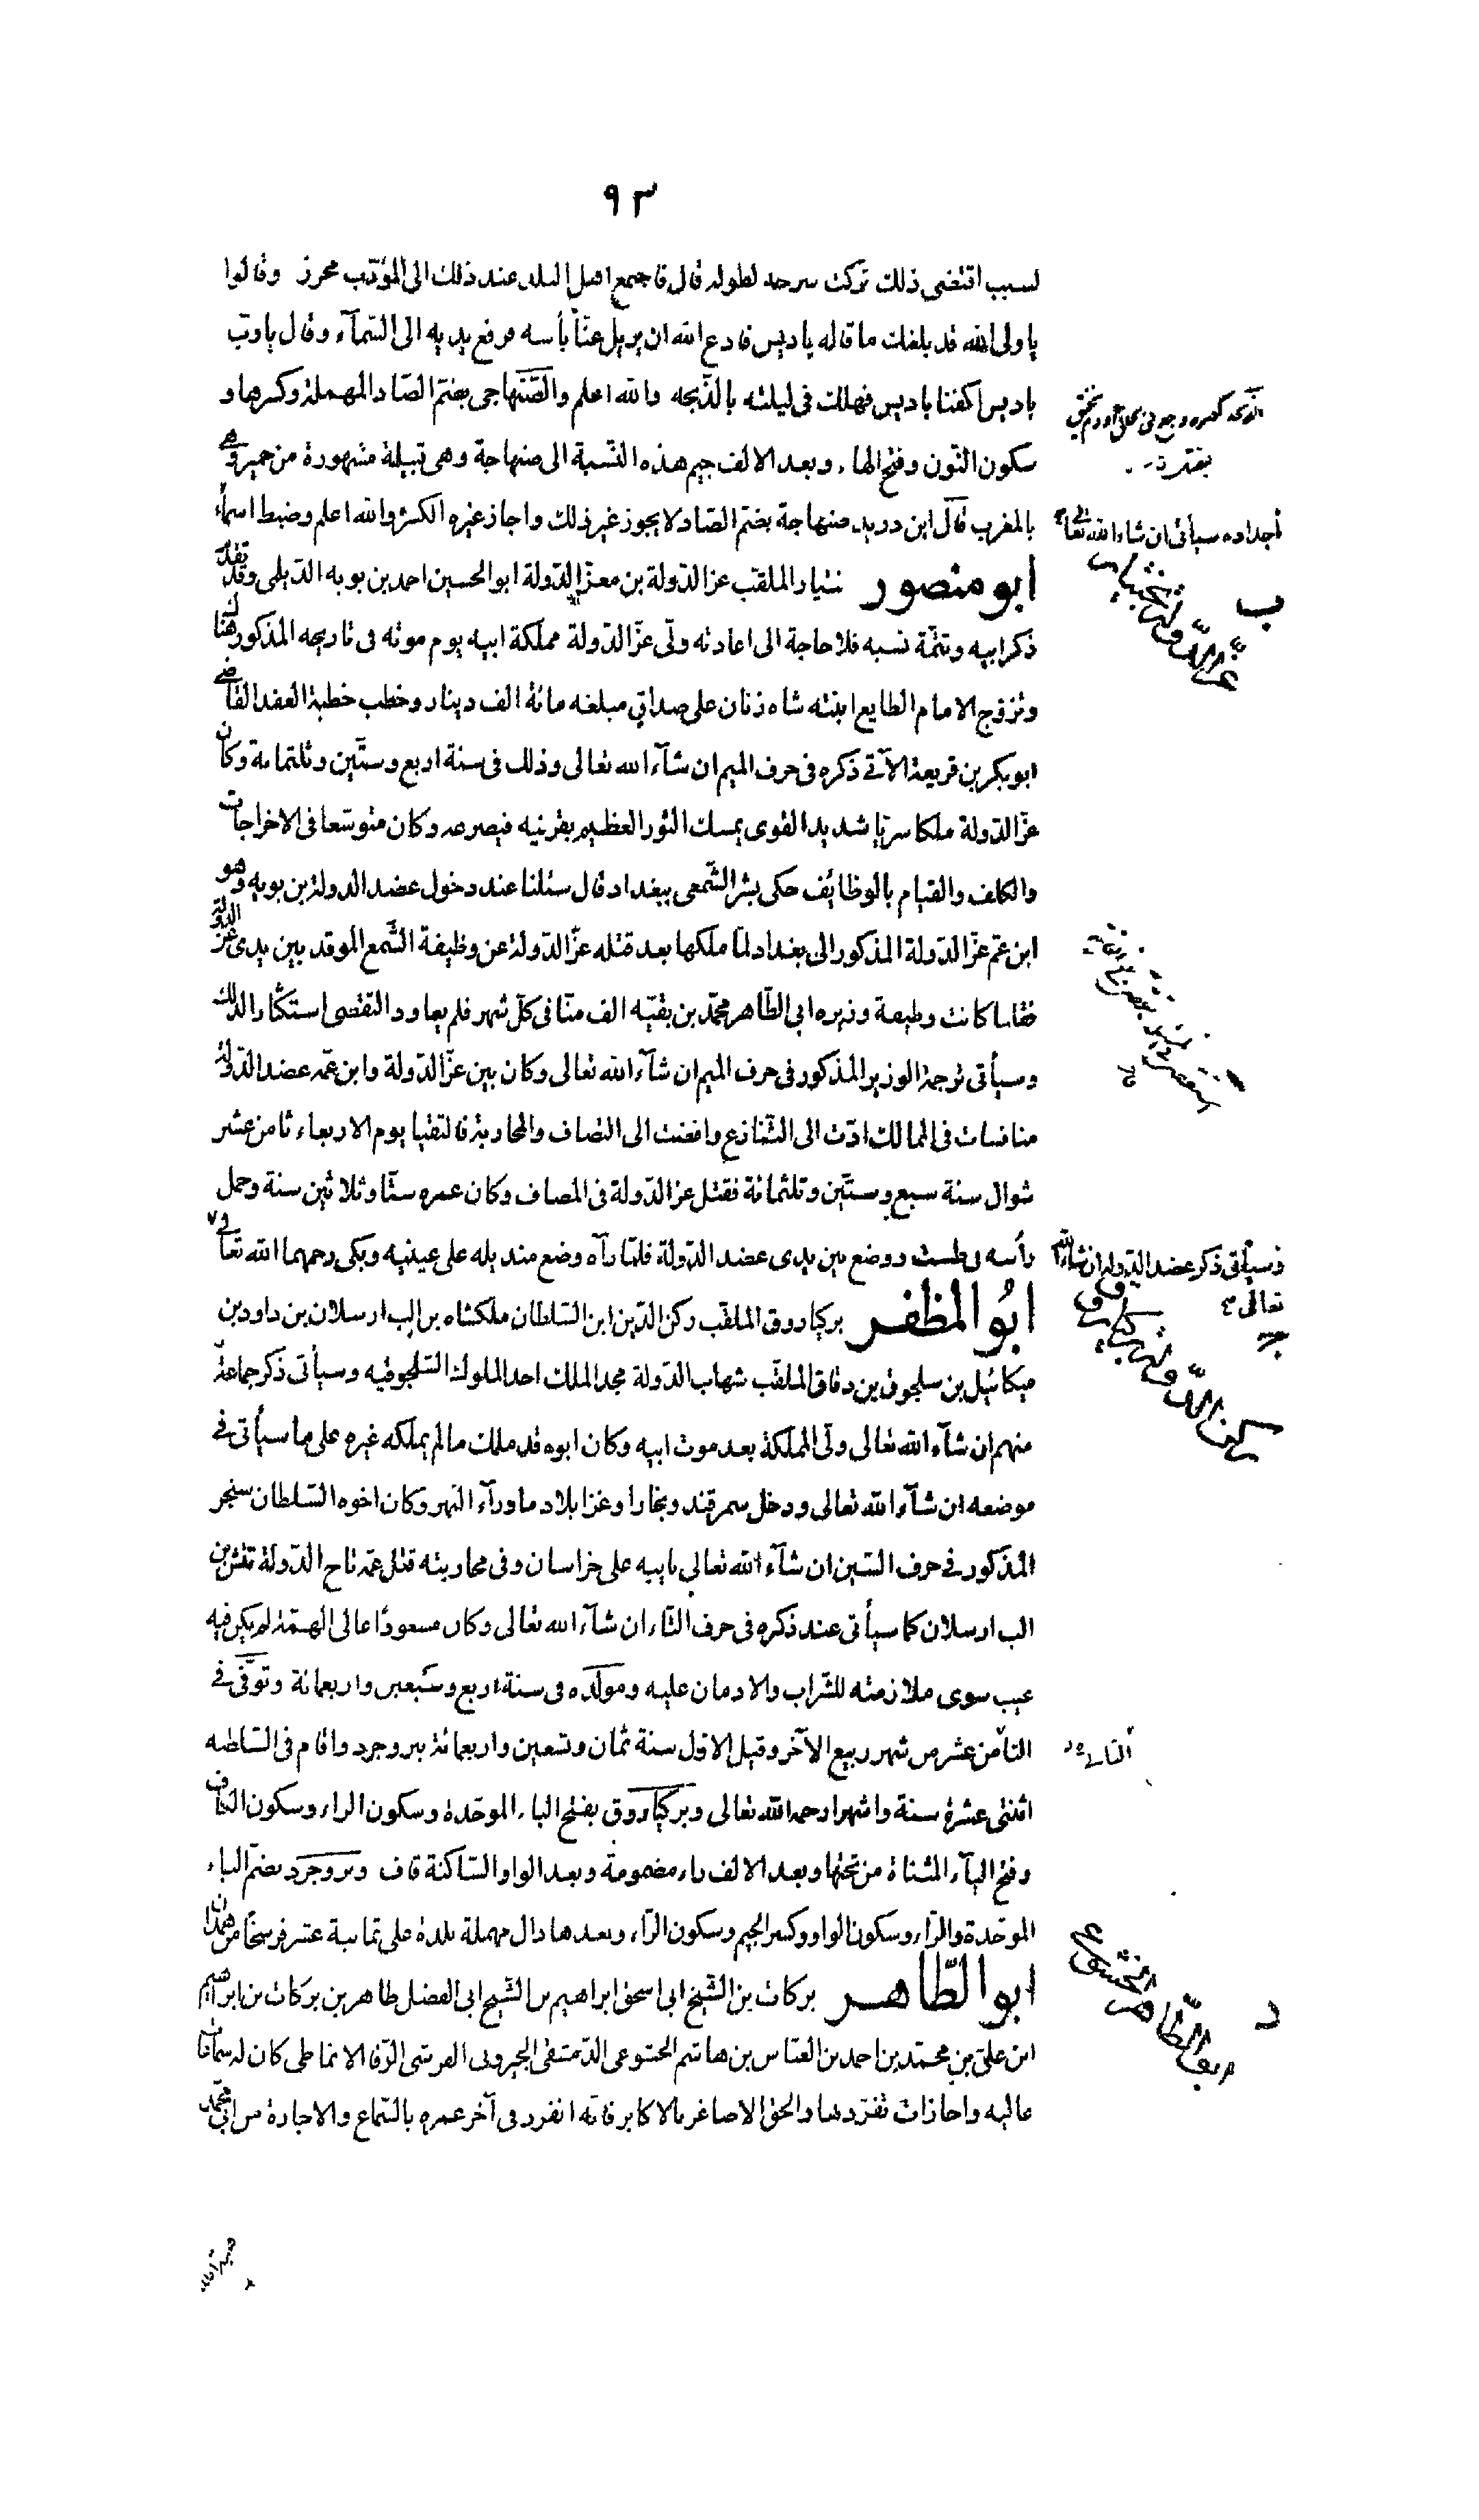 ٩٣
لسبب اقتضى ذلك تركت سرحه لطوله قال فاجتمع اهل البلد عند ذلك الى المؤدّب محرز وقالوا
يا ولى الله قد بلغك ما قاله باديس فادع الله ان يزيل عنّا بأسه فرفع يديه الى السّمآء وقال يا ربّ
باديس اكفنا باديس فهلك فى ليلته بالذّبحه والله اعلم والصّنهاجى بضمّ الصّاد المهملة وكسرها و
سكون النّون وفتح الهاء وبعد الالف جيم هذه النّسبة الى صنهاجة وهى قبيلة مشهورة من حمير وهى
بالمغرب قال ابن دريد صنهاجة بضمّ الصّاد لا يجوز غير ذلك واجاز غيره الكسر والله اعلم وضبط اسمآء
أجداده سيأتى ان شاء الله تعالى
ب
عزّ الدّولة بختيار
ابو منصور بختيار الملقب عز الدّولة بن معزّ الدّولة ابو الحسين احمد بن بويه الدّيلمى وقد تقدّم
ذكر ابيه وتتمّة نسبه فلا حاجة الى اعادته ولّى عزّ الدّولة مملكة ابيه يوم موته فى تاريخه المذكور هناك
وتزوّج الامام الطايع ابنته شاه زنان على صداق مبلغه مائة الف دينار وخطب خطبة العقد القاضى
ابو بكر بن قريعة الآتى ذكره فى حرف الميم ان شآء الله تعالى وذلك فى سنة اربع وستّين وثلثماية وكان
عزّ الدّولة ملكا سريّا شديد القوى يمسك الثور العظيم بقرنيه فيصرعه وكان متوسّعا فى الاخراجات
والكلف والقيام بالوظايف حكى بشر الشّمعى ببغداد قال سئلنا عند دخول عضد الدولة بن بويه وهو
ابن عمّ عزّ الدّولة المذكور الى بغداد لمّا ملكها بعد قتله عزّ الدّولة عن وظيفة الشّمع الموقد بين يدى عزّ الدّولة
فقلنا كانت وظيفة وزيره ابى الطّاهر محمّد بن بقيّه الف منّا فى كلّ شهر فلم يعاود التقصى استكثارا لذلك
وسيأتى ترجمة الوزير المذكور فى حرف الميم ان شآء الله تعالى وكان بين عزّ الدّولة وابن عمّه عضد الدّولة
منافسات فى الممالك ادّت الى التّنازع وافضت الى التصاف والمحاربة فالتقيا يوم الاربعاء ثامن عشر
شوال سنة سبع وستّين وثلثمائة فقتل عز الدّولة فى المصاف وكان عمره ستّا وثلاثين سنة وحمل
رأسه فى طست ووضع بين يدى عضد الدّولة فلمّا رآه وضع منديله على عينيه وبكى رحمهما الله تعالى
وسيأتى ذكر عضد الدّولة ان شاء الله
تعالى
ج
ركن الدّولة بركياروق
ابو المظفر بركياروق الملقب ركن الدّين ابن السّلطان ملكشاه بن الب ارسلان بن داود بن
ميكائيل بن سلجوق بن دقاق الملقب شهاب الدّولة مجد الملك احد الملوك السّلجوقيه وسيأتى ذكر جماعة
منهم ان شآء الله تعالى ولّى المملكة بعد موت ابيه وكان ابوه قد ملك ما لم يملكه غيره على ما سيأتى فى
موضعه ان شآء الله تعالى ودخل سمرقند وبخارا وغزا بلاد ماورآء النّهر وكان اخوه السّلطان سنجر
المذكور فى حرف السّين ان شآء الله تعالى نايبه على خراسان وفى محاربته قتل عمّه تاج الدّولة تتش بن
الب ارسلان كما سيأتى عند ذكره فى حرف التّاء ان شآء الله تعالى وكان مسعودا عالى الهمّة لم يكن فيه
عيب سوى ملازمته للشّراب والادمان عليه ومولده فى سنة اربع وسبعين واربعمائة وتوفّى فى
الثّامن عشر من شهر ربيع الآخر وقيل الاوّل سنة ثمان وتسعين واربعمائة ببروجرد واقام فى السّلطنه
اثنتى عشرة سنة واشهرا رحمه الله تعالى وبركياروق بفتح الباء الموحّدة وسكون الراء وسكون الكاف
وفتح اليآء المثناة من تحتها وبعد الالف راء مضمومة وبعد الواو السّاكنة قاف وبروجرد بضمّ الباء
الموحّدة والرّاء وسكون الواو وكسر الجيم وسكون الرّاء وبعدها دال مهملة بلدة على ثمانية عشر فرسخا من همدان
د
ابو الطّاهر الخشوعى
ابو الطّاهر بركات بن الشّيخ ابى اسحق ابراهيم بن الشّيخ ابى الفضل طاهر بن بركات بن ابرهيم
ابن علىّ بن محمّد بن احمد بن العبّاس بن هاشم الخشوعى الدّمشقى الجيرونى القرشى الرّفا الانماطى كان له سماعات
عاليه واجازات تفرّد بها والحق الاصاغر بالاكابر فانّه انفرد فى آخر عمره بالسّماع والاجازة من ابى محمّد